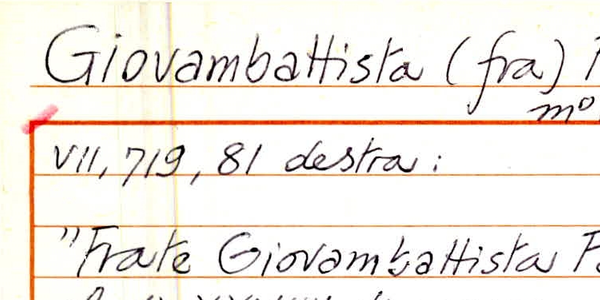 Giovambattista (fra)
mo
VII, 719, 81 destra:
"Frate Giovambattista